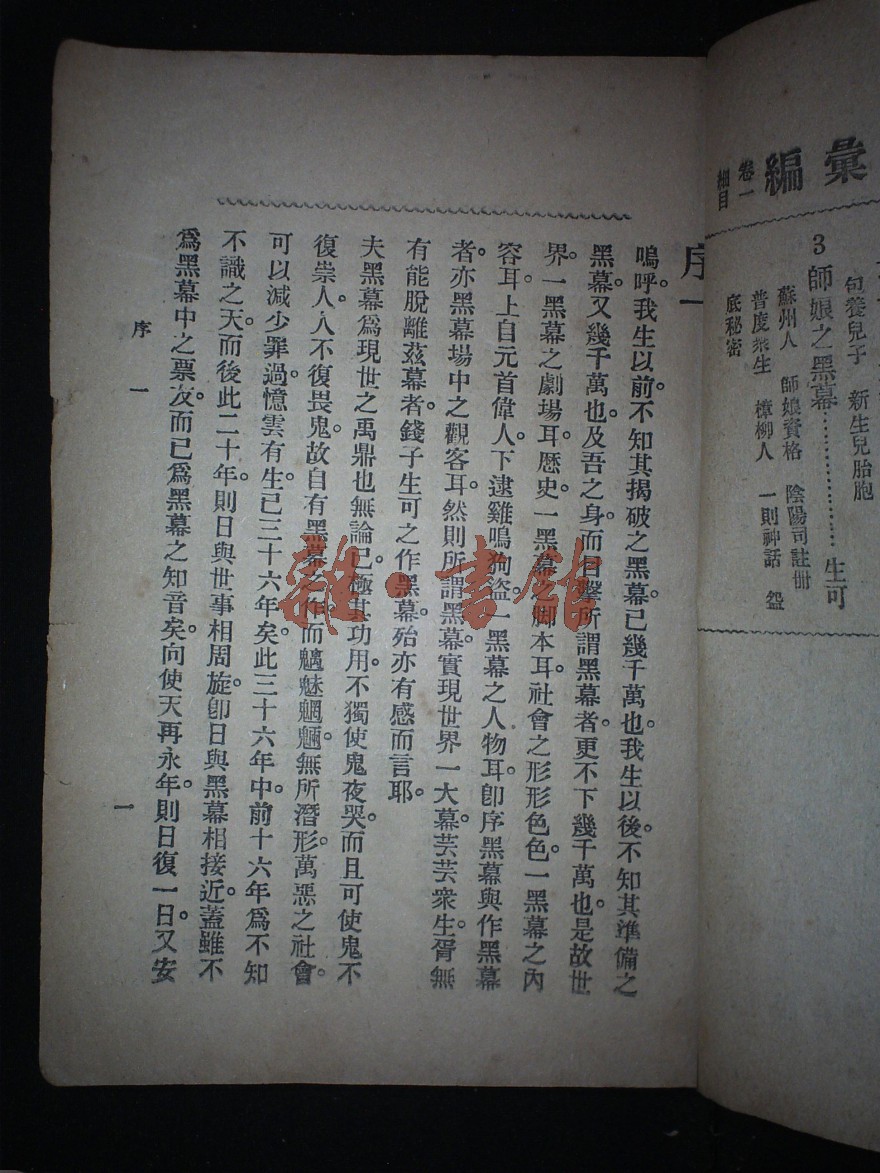 彙編
卷一
細目
包養兒子　新生兒胎胞
3 師娘之黑幕………………生可
蘇州人　師娘資格　陰陽司註冊
普度衆生　樟柳人　一則神話　盌
底秘密
序一
嗚呼。我生以前。不知其揭破之黑幕。已幾千萬也。我生以後。不知其準備之
黑幕。又幾千萬也。及吾之身。而目擊所謂黑幕者。更不下幾千萬也。是故世
界。一黑幕之劇場耳。歷史。一黑幕之脚本耳。社會之形形色色。一黑幕之內
容耳。上自元首偉人。下逮雞鳴狗盜。一黑幕之人物耳。卽序黑幕與作黑幕
者。亦黑幕場中之觀客耳。然則所謂黑幕。實現世界一大幕。芸芸衆生。胥無
有能脫離茲幕者。錢子生可之作黑幕。殆亦有感而言耶。
夫黑幕爲現世之禹鼎也無論已。極其功用。不獨使鬼夜哭。而且可使鬼不
復祟人。人不復畏鬼。故自有黑幕之作。而魑魅魍魎。無所潛形。萬惡之社會。
可以減少罪過。憶雲有生。已三十六年矣。此三十六年中。前十六年爲不知
不識之天。而後此二十年。則日與世事相周旋。卽日與黑幕相接近。蓋雖不
爲黑幕中之票友。而已爲黑幕之知音矣。向使天再永年。則日復一日。又安
序一
一
雜·書館